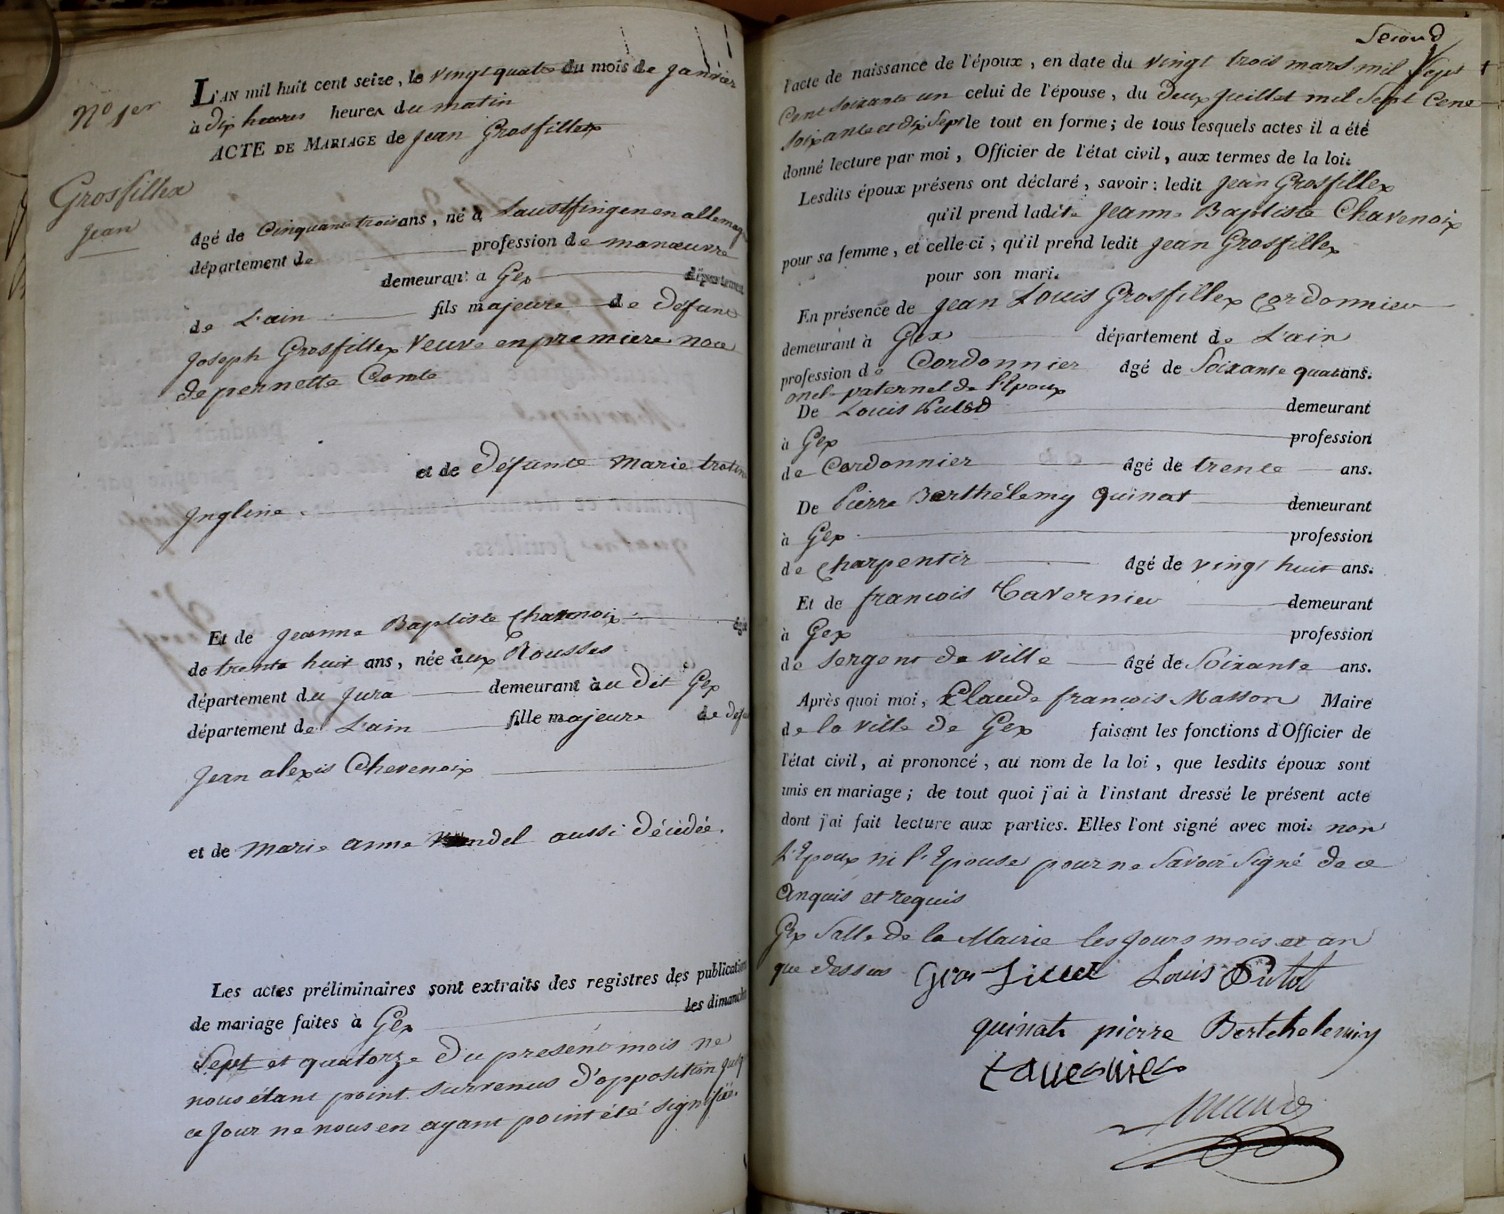 No 1er
L'AN mil huit cent seize, le vingt quatre du mois de Janvier
à dix heures heures du matin
ACTE DE MARIAGE de Jean Grosfillex
Grosfillex
Jean
âgé de Cinquante trois ans, né à Laustfingen en allemag
département de profession de manœuvre
demeurant a Gex département
de L'ain fils majeure de défunt
Joseph Grosfillex Veuve en premiere noce
de pernette Comte
et de défunte Marie
Ingline
Et de Jeanne Baptiste Chavenoix âgée
de trente huit ans, née aux Rousses
département du Jura demeurant au dit Gex
département de L'ain fille majeure de défu
Jean alexis Chevenoix
et de Marie anne aussi décédée.
Les actes préliminaires sont extraits des registres des publication
de mariage faites à Gex les dimanche
Sept et quatorze du présent mois ne
nous étant point survenus d'opposition jusq
ce jour ne nous en ayant point été signifiée.
Second
l'acte de naissance de l'époux, en date du vingt trois mars mil Sept
Cent Soixante un celui de l'épouse, du deux Juillet mil Sept Cent
Soixante et dix Sept le tout en forme; de tous lesquels actes il a été
donné lecture par moi, Officier de l'état civil, aux termes de la loi.
Lesdits époux présens ont déclaré, savoir: ledit Jean Grosfillex
qu'il prend ladite Jeanne Baptiste Chavenoix
pour sa femme, et celle-ci, qu'il prend ledit Jean Grosfillex
pour son mari.
En présence de Jean Louis Grosfillex Cordonnier
demeurant à Gex département de L'ain
profession de Cordonnier âgé de Soixante quatre ans.
oncle paternel de l'Epoux
De Louis demeurant
à Gex profession
de Cordonnier âgé de trente ans.
De Pierre Berthélemy quinat demeurant
à Gex profession
de Charpentier âgé de vingt huit ans.
Et de francois Tavernier demeurant
à Gex profession
de Sergent de Ville âgé de Soixante ans.
Après quoi moi, Claude françois Masson Maire
de la Ville de Gex faisant les fonctions d'Officier de
l'état civil, ai prononcé, au nom de la loi, que lesdits époux sont
unis en mariage; de tout quoi j'ai à l'instant dressé le présent acte
dont j'ai fait lecture aux parties. Elles l'ont signé avec moi. non
l'Epoux ni l'Epouse pour ne Savoir Signé de ce
anquis et requis
Gex Salle de la Mairie les Jours mois et an
que dessus Louis
quinat pierre Bertchelemiy
taverniers